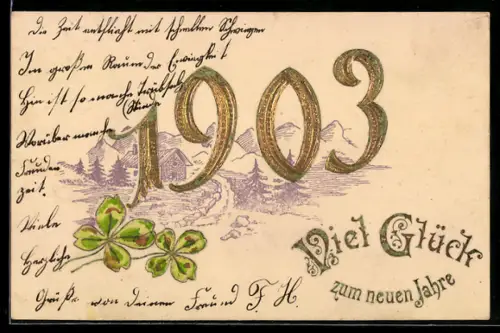 Die Zeit entflieht mit schnellen Schwingen
Im großen Raum der Ewigkeit
Hin ist so manche Trübsal
Stunde
Vorüber manche
Freuden
zeit.
Viele
Herzliche
Grüße von deinem Freund F. H.
1903
Viel Glück
zum neuen Jahre